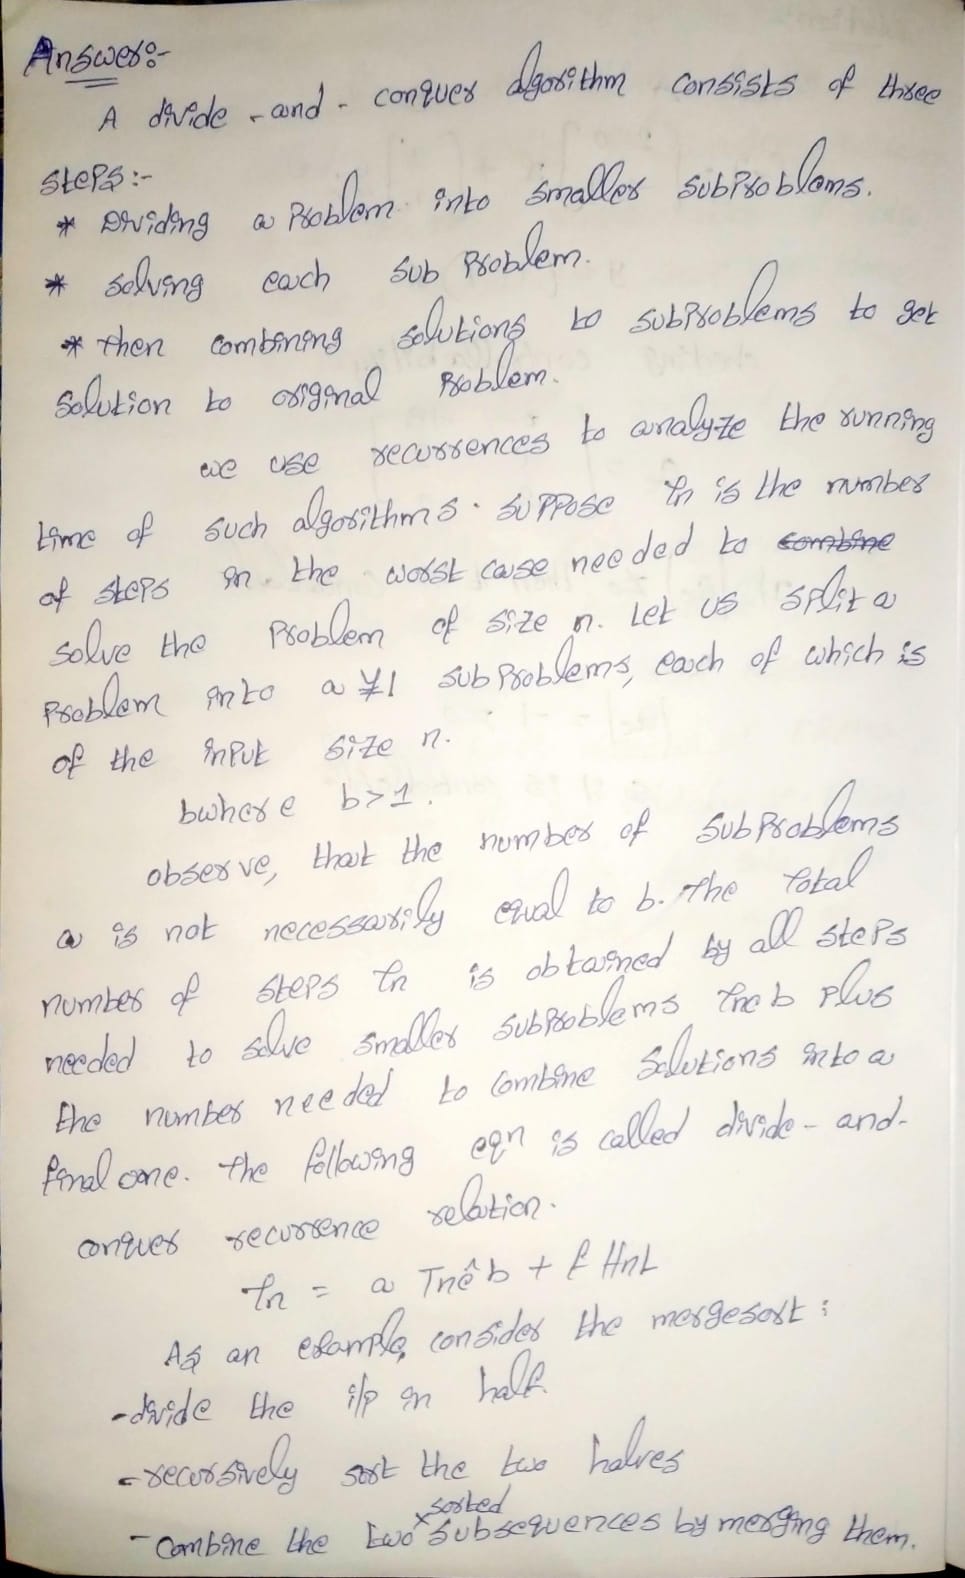 Answer:-
A divide - and - conquer algorithm consists of three
steps:-
* Dividing a Problem into smaller subproblems.
* solving each sub problem.
* then combining solutions to subproblems to get
solution to original problem.
we use recurrences to analyze the running
time of such algorithms. suppose Tn is the number
of steps in the worst case needed to combine
solve the problem of size n. Let us split a
problem into a ≥1 subproblems, each of which is
of the input size n.
bwhere b>1.
observe, that the number of subproblems
a is not necessarily equal to b. The total
number of steps Tn is obtained by all steps
needed to solve smaller subproblems Tneb plus
the number needed to combine solutions into a
final one. The following eqn is called divide - and-
conquer recurrence relation.
Tn = a Tnêb + f HnL
As an example, consider the mergesort:
-divide the i/p in half.
-recursively sort the two halves
-combine the two sorted subsequences by merging them.